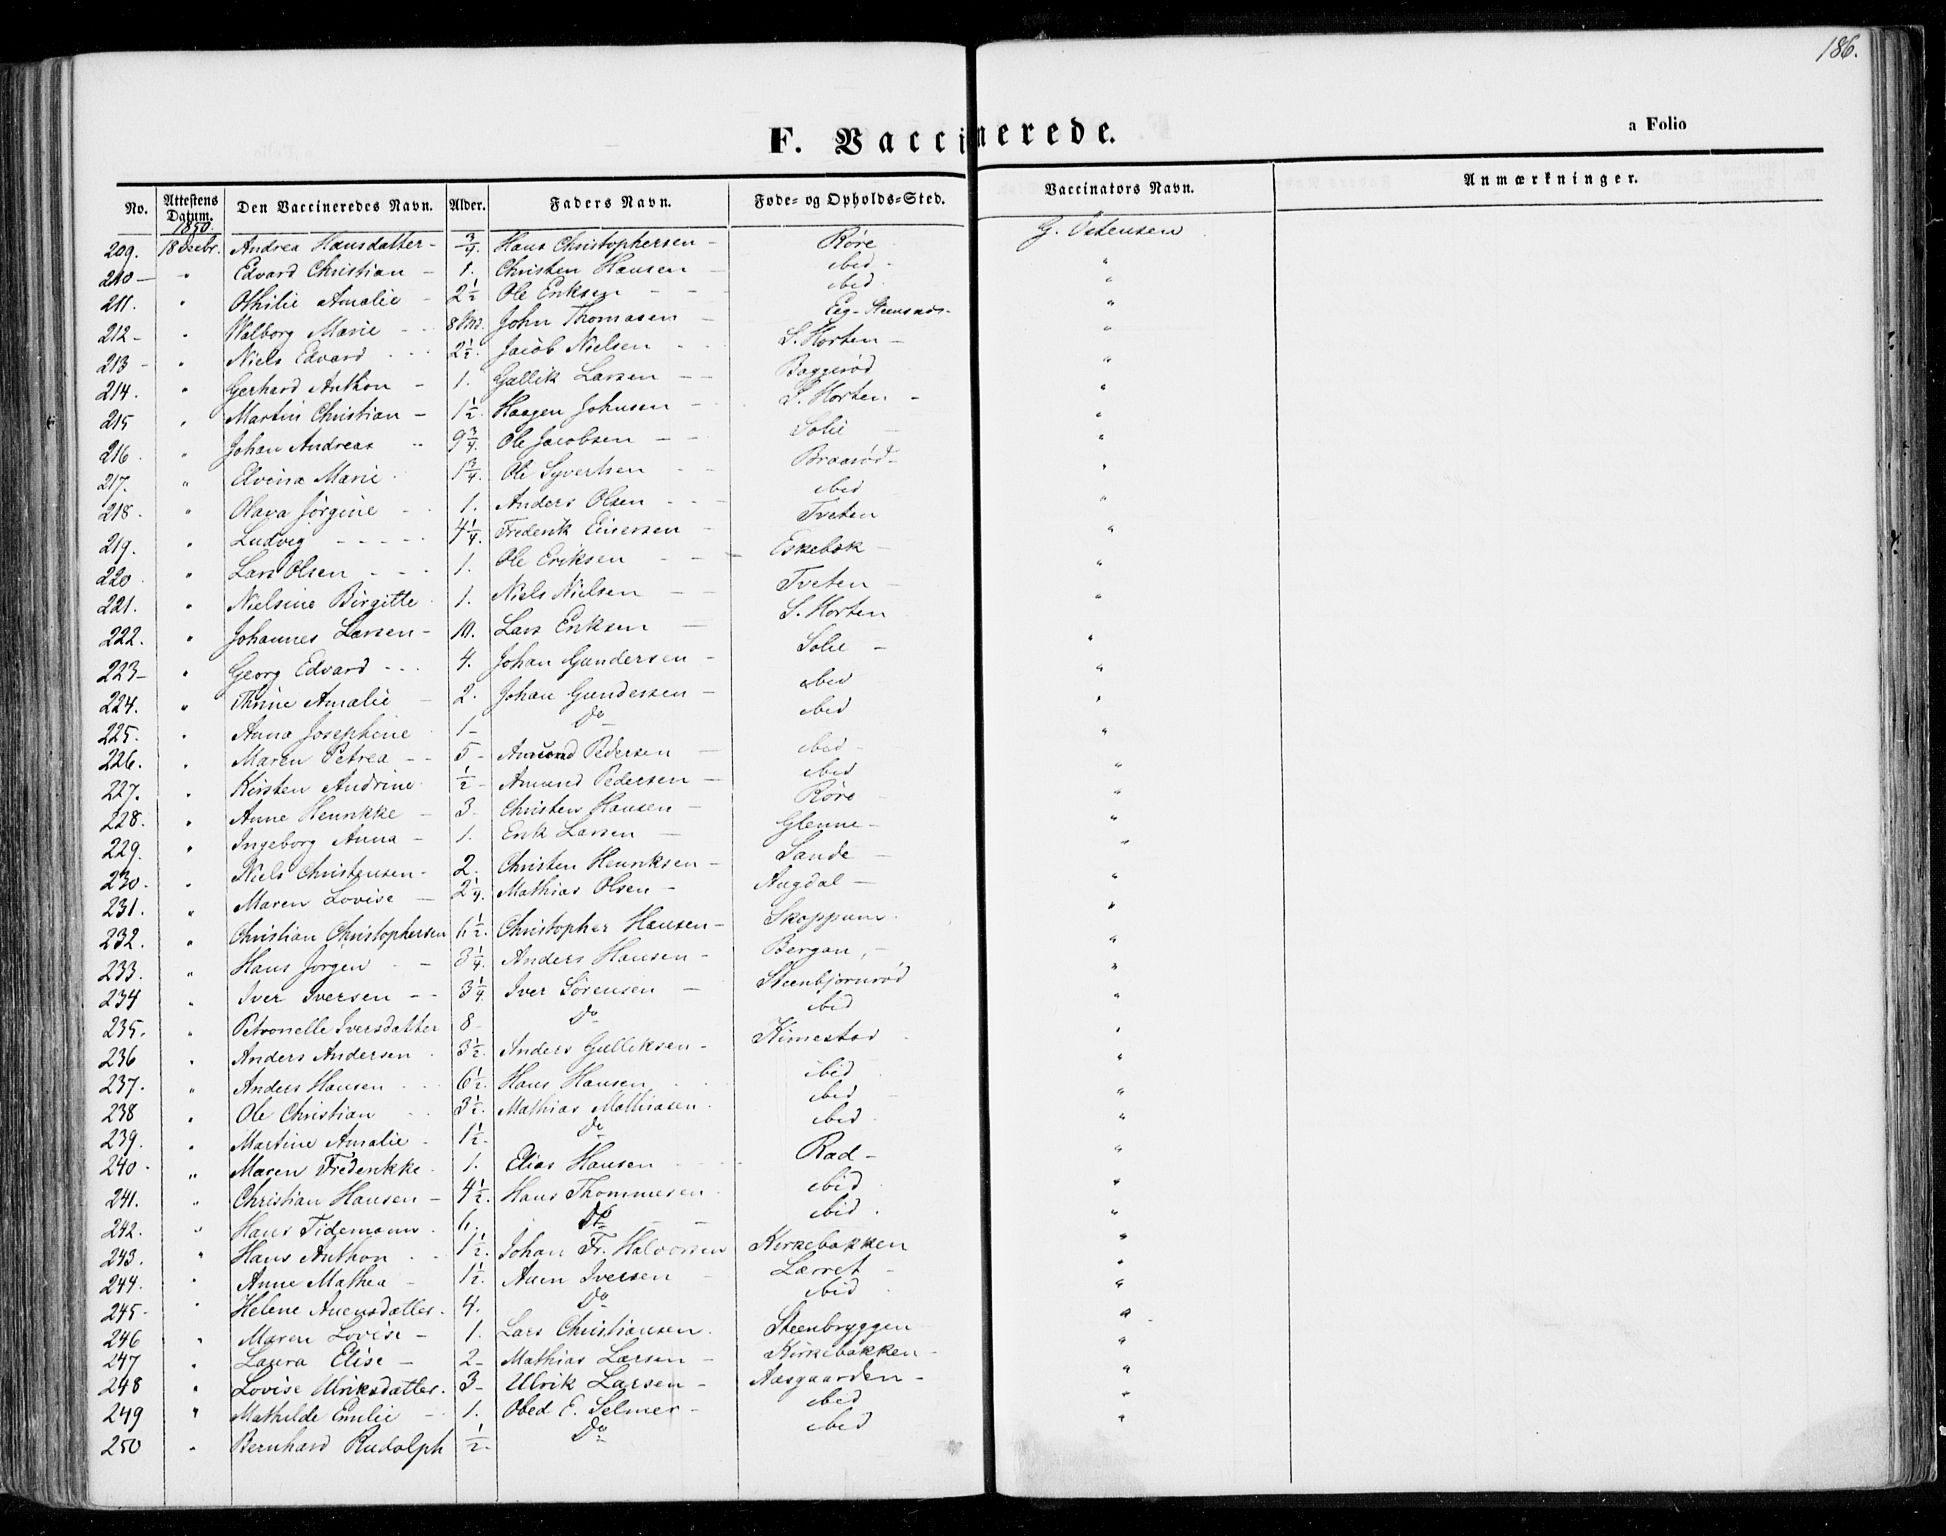 186.
F. Vaccinerede.
a Folio
No. Attestens Datum. Den Vaccineredes Navn. Alder. Faders Navn. Føde- og Opholds-Sted. Vaccinators Navn. Anmærkninger.
1850.
209. 18 Andrea Hansdatter - 3/4. Hans Christophersen - Røre G.
210 - " Edvard Christian - 1. Christen Hansen - ibid - "
211. " Othilie Amalie - 2 1/2 Ole Eriksen - - ibid. "
212 - " Walborg Marie - 8 Md. John Thomasen - "
213 - " Niels Edvard - - - 2 1/2. Jacob Nielsen - - S. Horten - "
214. " Gerhard Anthon - 1. Gullik Larsen - - Baggerød "
215 " Martin Christian - 1 1/2. Haagen Johnsen - S. Horten - "
216. " Johan Andreas - 9 3/4. Ole Jacobsen - - Solie - "
217. " Elvina Marie - 1 3/4. Ole Syvertsen - - Braarød - "
218. " Olava Jørgine - 1. Anders Olsen - - - ibid "
219. " Ludvig - - - - - 4 1/4. Frederik - Tveten "
220 " Lars Olsen - - - 1. Ole Eriksen - - Eskebæk - "
221. " Nielsine Birgitte 1. Niels Nielsen - - Tveten - "
222. " Johannes Larsen - 10. Lars Eriksen - S. Horten "
223 - " Georg Edvard - - - 4. Johan Gundersen - Solie - "
224. " Thrine Amalie - 2. Johan Gundersen - ibid "
225. " Anna Josephine 1 - Do ibid "
226. " Maren Petrea - - 5 - Amund Pedersen - ibid - "
227. " Kirsten Andrine 1/2 - Amund Pedersen - ibid "
228. " Anne Henrikke - 3 - Christen Hansen - Røre - "
229. " Ingeborg Anna - 1. Erik Larsen - Glenne - "
230. " Niels Christensen - 2. Christen Henriksen - Sande - "
231. " Maren Lovise - 2 1/4. Mathias Olsen - Augdal - "
232. " Christian Christophersen 6 1/2. Christopher Hansen - Skoppum. "
233. " Hans Jørgen - - 3 1/4. Anders Hansen - Bergan, - "
234 " Iver Iversen - - 3 1/4. Iver Sørensen - Steenbjørnrød "
235. " Petronelle Iversdatter 8 - Do ibid "
236 " Anders Andersen 3 1/2. Anders Gulliksen - Kimestad "
237. " Anders Hansen - - 6 1/2. Hans Hansen - - ibid "
238 " Ole Christian - - 3 1/2. Mathias Mathiasen. ibid - "
239. " Martine Amalie - 1 1/2. Do ibid. "
240 - " Maren Frederikke. 1. Elias Hansen - - Rad - "
241. " Christian Hansen - 4 1/2. Hans Thommesen. ibid "
242. " Hans Tidemann. 6. Do - - ibid. "
243. " Hans Anthon - - 1 1/2. Johan Fr. Halvorsen Kirkebakken "
244. " Anne Mathea - 1 1/2. Auen Iversen - Lærret - "
245 - " Helene Auensdatter. 4. Do ibid. "
246 " Maren Lovise - 1. Lars Christiansen. Steenbryggen - "
247 " Laura Elise - 2 - Mathias Larsen - Kirkebakken - "
248 " Lovise Ulriksdatter. 3 - Ulrik Larsen - Aasgaarden - "
249 " Mathilde Emilie - 1. Obed E. Selmer - ibid "
250 " Bernhard Rudolph 1/2 - Do ibid "